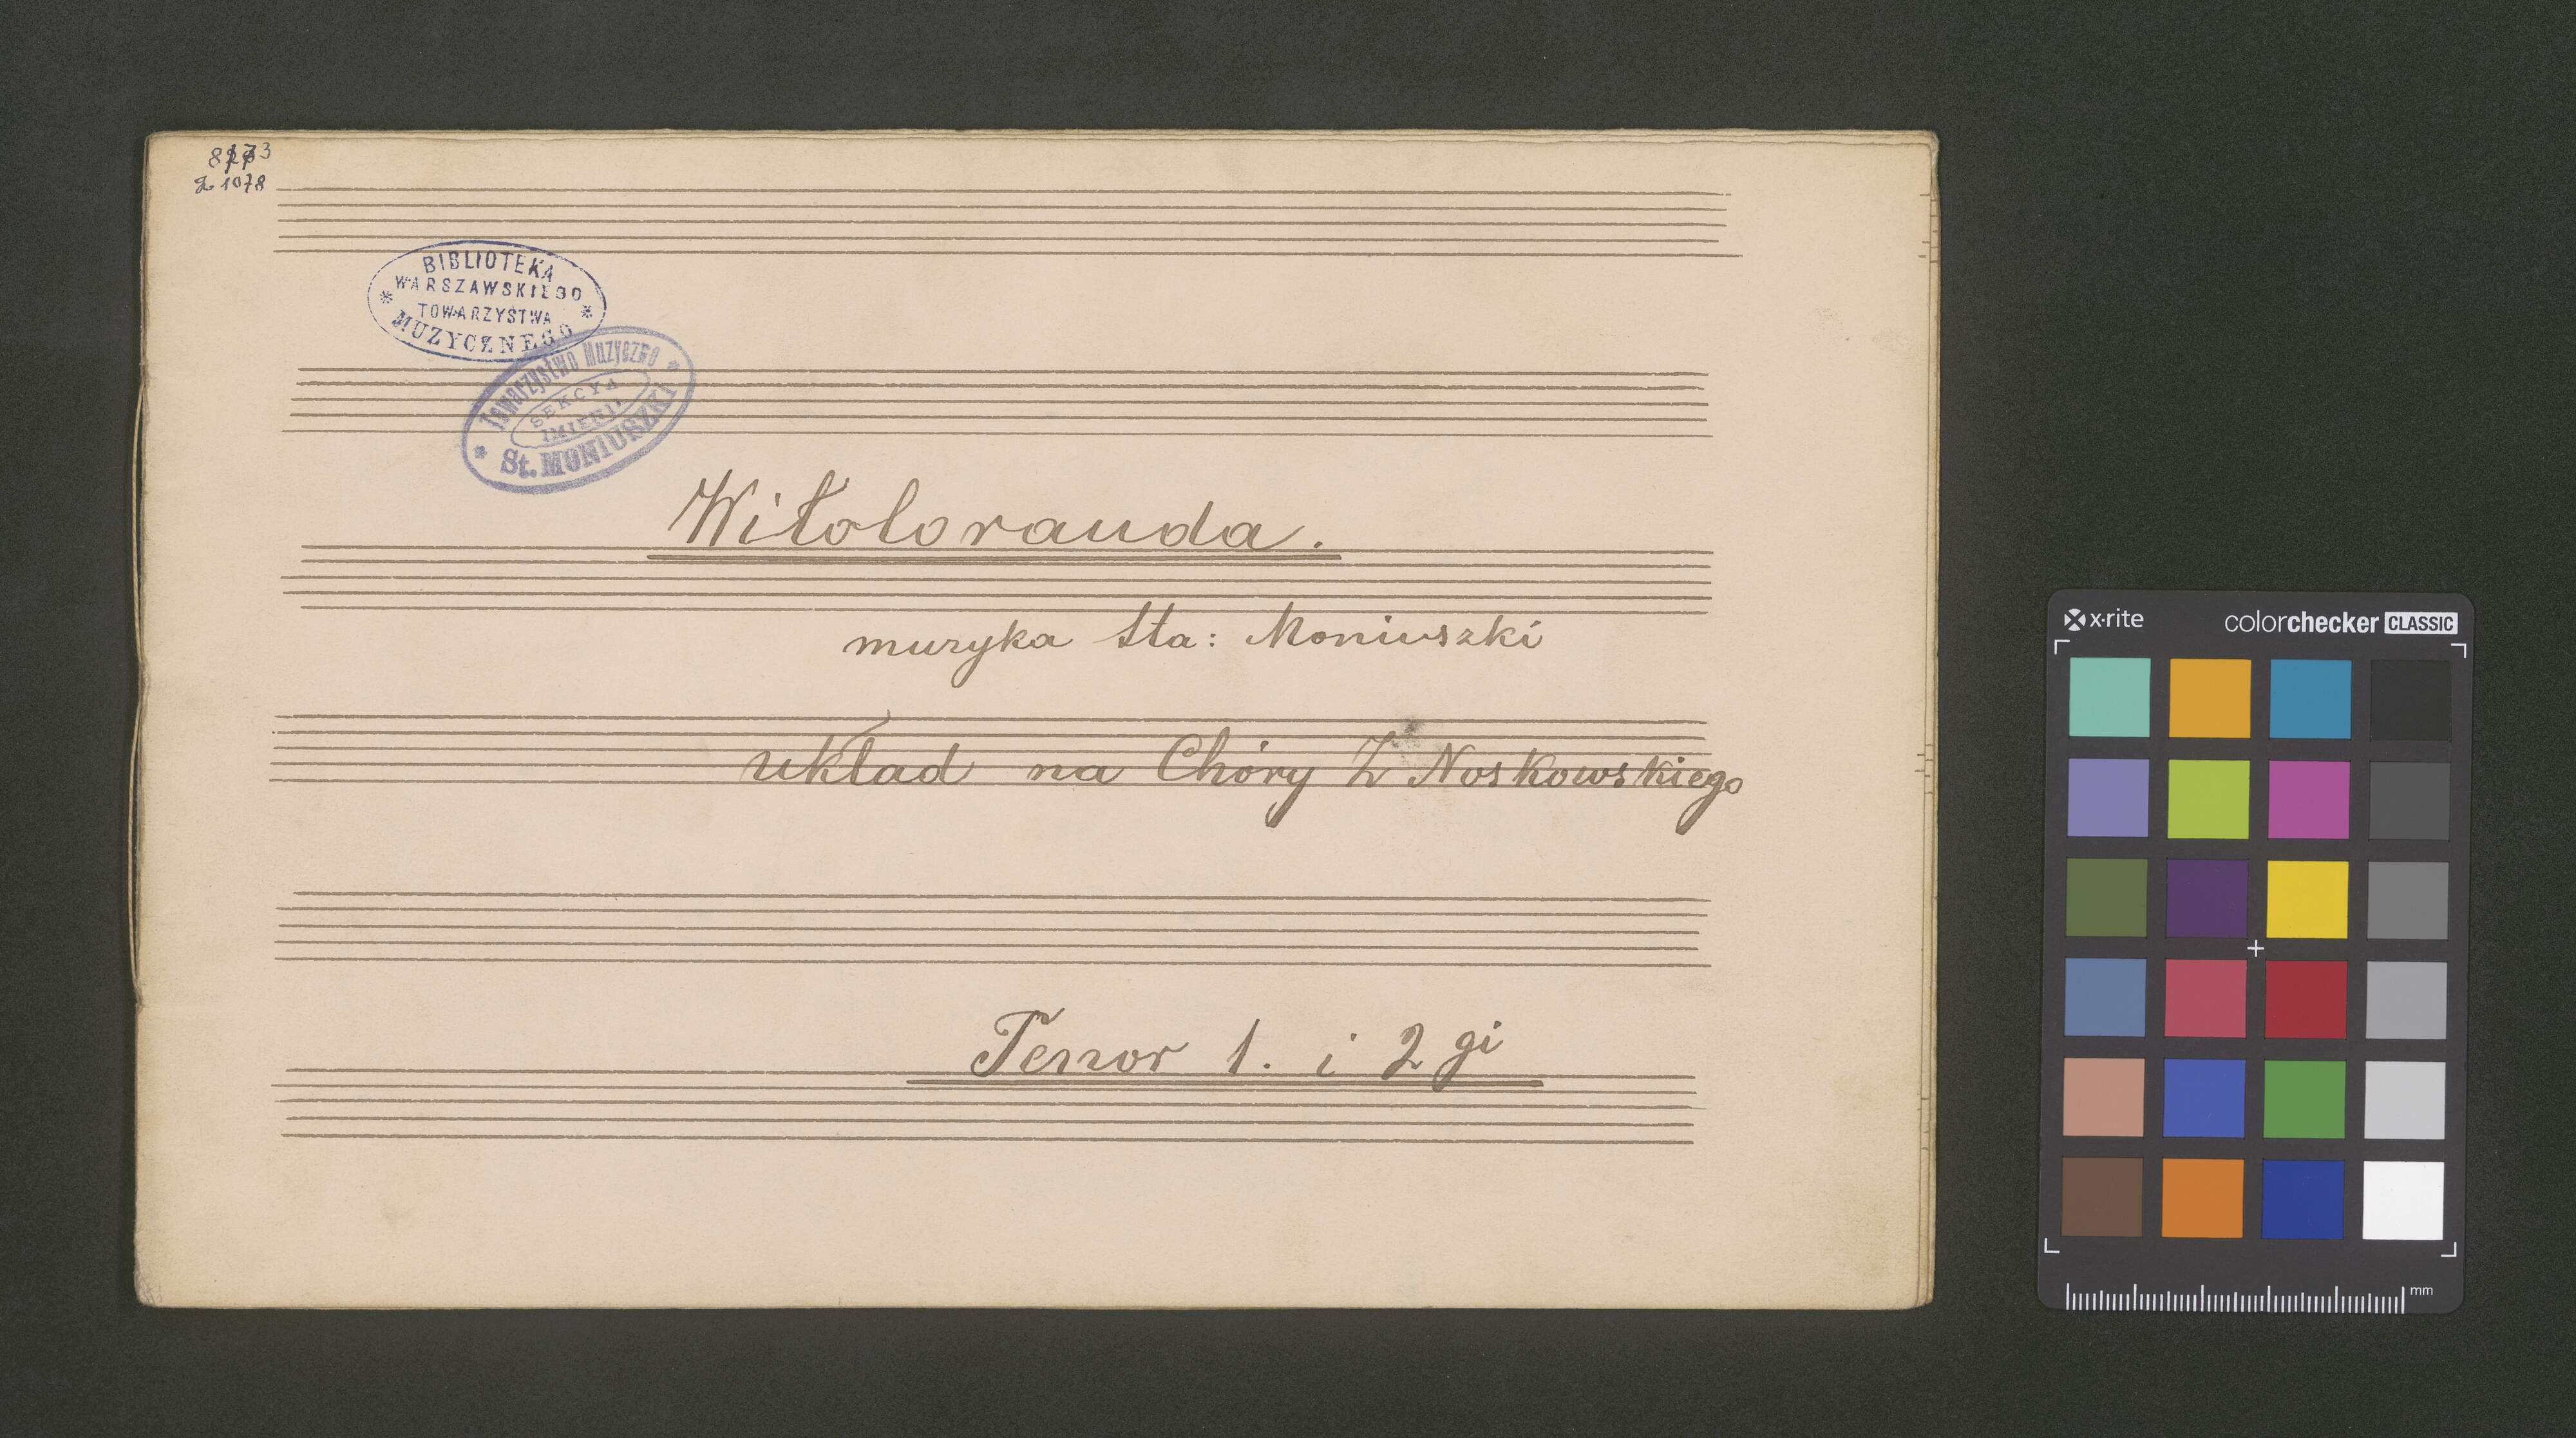 z 1078
BIBLIOTEKA
WARSZAWSKIEGO
TOWARZYSTWA
MUZYCZNEGO
Towarzystwo Muzyczne
SEKCYA
IMIENIA
St. MONIUSZKI
Witolorauda.
muzyka Sta: Moniuszki
układ na Chóry Z Noskowskiego
Tenor 1. i 2 gi
x·rite
colorchecker CLASSIC
mm